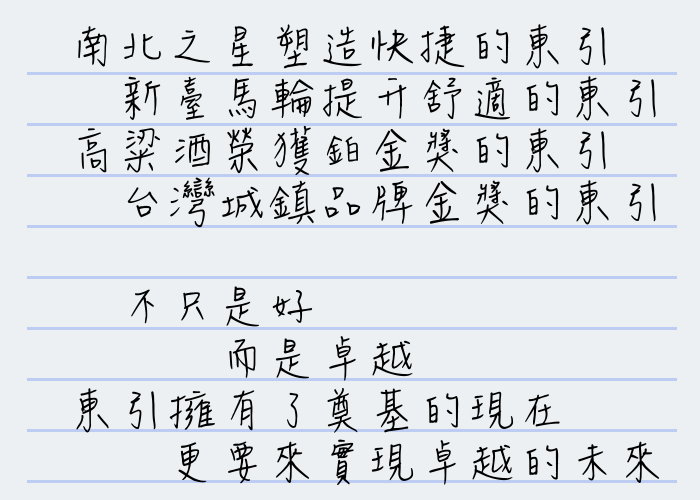 南北之星塑造快捷的東引
新臺馬輪提升舒適的東引
高粱酒榮獲鉑金獎的東引
台灣城鎮品牌金獎的東引
不只是好
而是卓越
東引擁有了奠基的現在
更要來實現卓越的未來